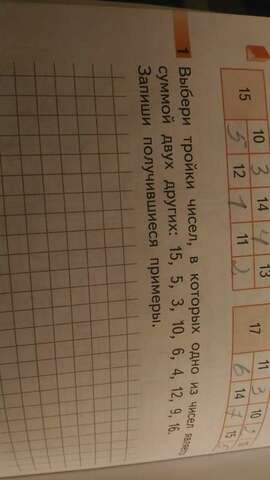 10 3 14 4 13
15
5 12 1 11 2
11 3 10
17
6 14 7 15
1 Выбери тройки чисел, в которых одно из чисел
суммой двух других: 15, 5, 3, 10, 6, 4, 12, 9, 16.
Запиши получившиеся примеры.